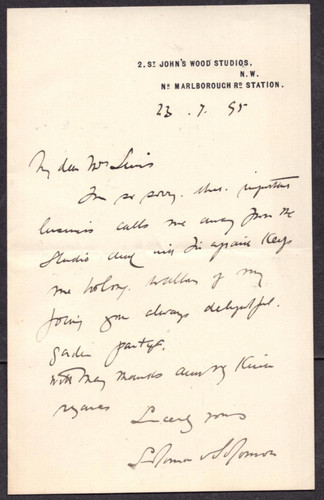 2, ST JOHN'S WOOD STUDIOS,
N.W.
NR MARLBOROUGH RD STATION.
23 . 7 . 95
My dear Mrs Lewis
I'm so sorry that important
business calls me away from the
Studio and will I'm afraid keep
me too long to allow of my
joining your always delightful
garden party.
With many thanks and my kind
regards
Sincerely yours
Solomon J Solomon